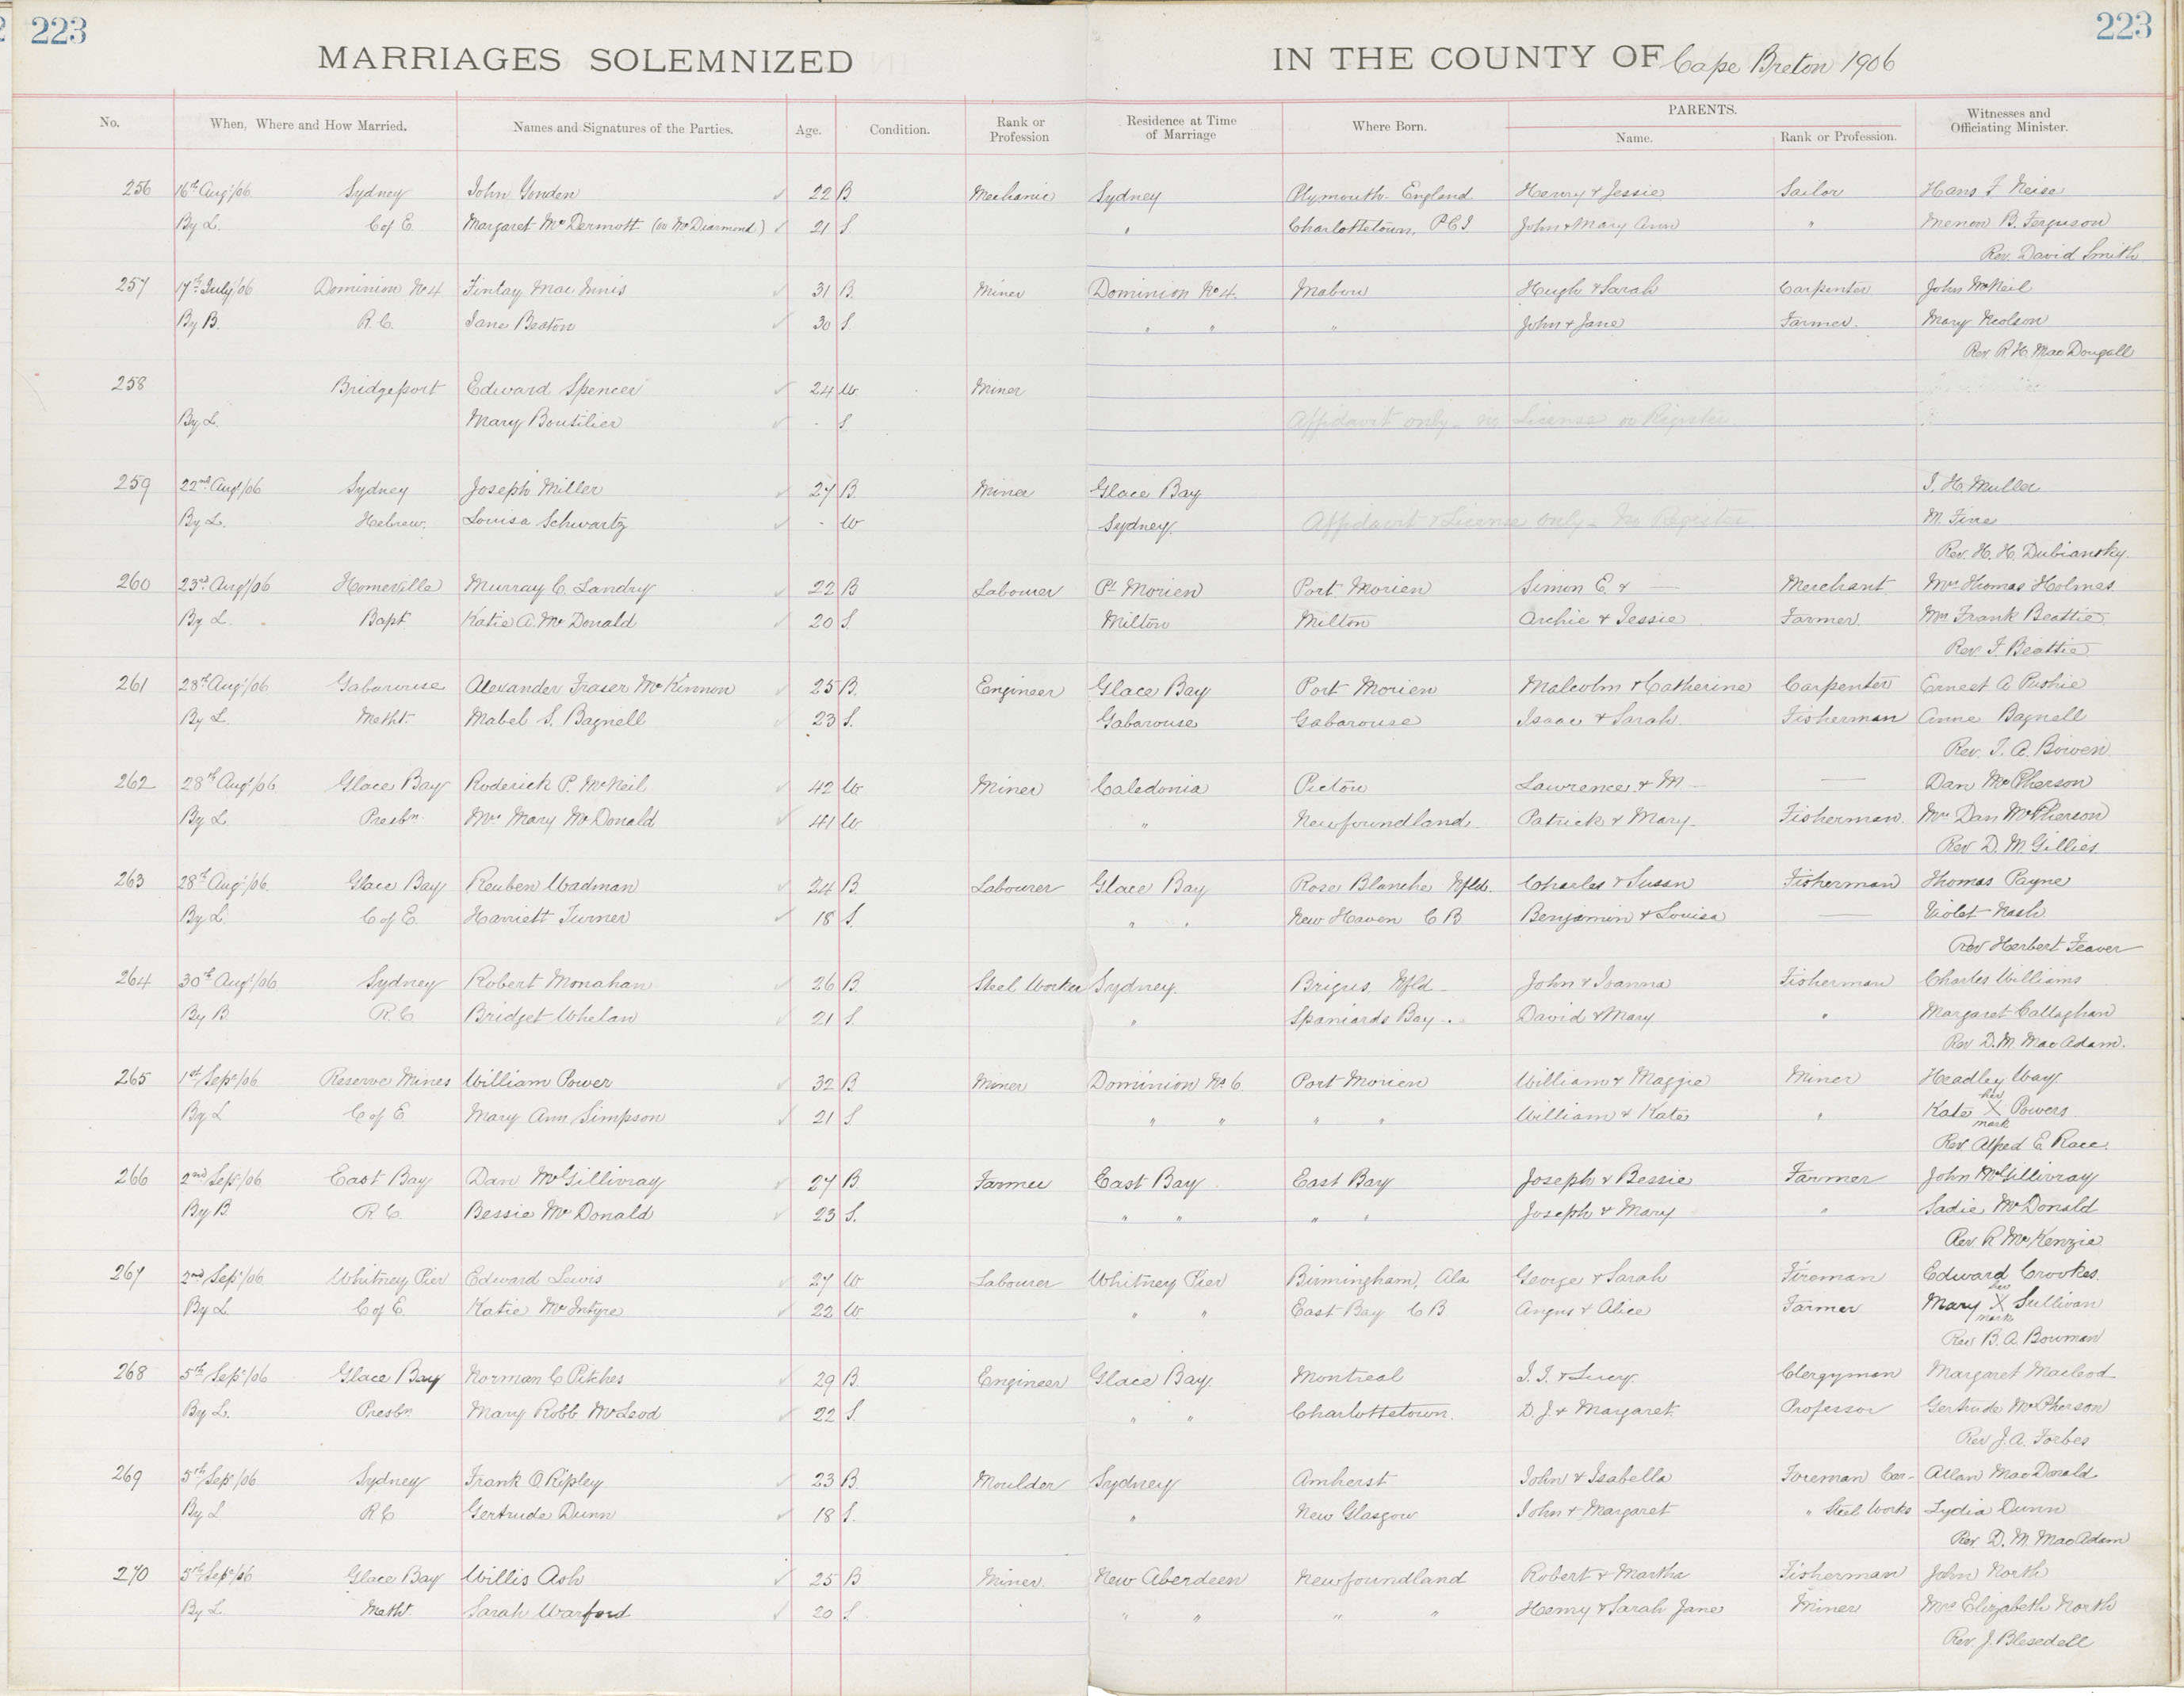 223
223
MARRIAGES SOLEMNIZED IN THE COUNTY OF Cape Breton 1906
No. When, Where and How Married. Names and Signatures of the Parties. Age. Condition. Rank or Profession Residence at Time of Marriage Where Born. PARENTS. Name. Rank or Profession. Witnesses and Officiating Minister.
256 16th Augt/06 Sydney John Yonden 22 B. Mechanic Sydney Plymouth England Henry & Jessie Sailor Hans F Neise
By L. C of E. Margaret McDermott (or McDiarmond) 21 S. " Charlottetown, P E I John & Mary Ann " B. Ferguson
Rev. David Smith
257 17th July/06 Dominion No 4 Finlay MacInnis 31 B. Miner Dominion No 4. Mabou Hugh & Sarah Carpenter John McNeil
By B. R. C. Jane Beaton 30 S. " " " John & Jane Farmer. Mary Neolson
Rev R. H. MacDougall
258 Bridgeport Edward Spencer 24 W. Miner
By L. Mary Boutilier - S. Affidavit only - no License or Register
259 22nd Augt/06 Sydney Joseph Miller 27 B. Miner Glace Bay J. H. Muller
By L. Hebrew. Louisa Schwartz - W Sydney. Affidavit & License only - No Register M. Fine
Rev. H. H. Dubiansky.
260 23rd Augt/06 Homeville Murray C. Landry 22 B Labourer Pt Morien Port Morien Simon E. & — Merchant Mrs Thomas Holmes
By L. Bapt Katie A. McDonald 20 S. Milton Milton Archie & Jessie Farmer. Mrs Frank Beattie
Rev. F. Beattie
261 28th Augt/06 Gabarouse Alexander Fraser McKinnon 25 B. Engineer Glace Bay Port Morien Malcolm & Catherine Carpenter Ernest A Pushie
By L. Metht. Mabel S. Bagnell 23 S. Gabarouse Gabarouse Isaac & Sarah Fisherman Anne Bagnell
Rev. T. A. Bowen
262 28th Augt/06. Glace Bay Roderick P. McNeil 42 W Miner Caledonia Pictou Lawrence & M — — Dan McPherson
By L Presbn. Mrs Mary McDonald 41 W. " Newfoundland Patrick & Mary Fisherman. Mrs Dan McPherson
Rev D. M. Gillies
263 28th Augt/06. Glace Bay Reuben Wadman 24 B Labourer Glace Bay Rose Blanche Nfld. Charles & Susan Fisherman Thomas Payne
By L. C of E. Harriett Turner 18 S. " " New Haven C B Benjamin & Louisa — Violet Nash
Rev Herbert Feaver
264 30th Augt/06 Sydney Robert Monahan 26 B. Steel Worker Sydney. Brigus Nfld John & Joanna Fisherman Charles Williams
By B R. C Bridget Whelan 21 S. " Spaniards Bay " David & Mary " Margaret Callaghan
Rev D. M. MacAdam.
265 1st Sep/06 Reserve Mines William Power 32 B Miner Dominion No 6. Port Morien William & Maggie Miner Headley Way
By L C of E. Mary Ann Simpson 21 S " " " " William & Kate " Kate her X mark Powers
Rev. Alfred E. Race.
266 2nd Sep/06 East Bay Dan McGillivray 27 B Farmer East Bay East Bay Joseph & Bessie Farmer John McGillivray
By B. R C. Bessie McDonald 23 S. " " " " Joseph & Mary " Sadie McDonald
Rev. R McKenzie
267 2nd Sep/06 Whitney Pier Edward Lewis 27 W Labourer Whitney Pier Birmingham, Ala George & Sarah Fireman Edward Crookes.
By L. C of E. Katie McIntyre 22 W. " " East Bay C B Angus & Alice Farmer Mary her X mark Sullivan
Rev B. A. Bowman
268 5th Sep/06 Glace Bay Norman C Pitches 29 B. Engineer Glace Bay. Montreal J. J. & Lucy. Clergyman Margaret Macleod
By L. Presbn Mary Robb McLeod 22 S. " " Charlottetown. D. J. & Margaret. Professor Gertrude McPherson
Rev J. A. Forbes
269 5th Sep/06 Sydney Frank O. Ripley 23 B. Moulder Sydney Amherst John & Isabella Foreman Car- Allan MacDonald
By L R C Gertrude Dunn 18 S. " New Glasgow John & Margaret " Steel Works Lydia Dunn
Rev D. M. MacAdam
270 5th Sep/06 Glace Bay Willis Ash 25 B Miner. New Aberdeen Newfoundland Robert & Martha Fisherman John North
By L Metht. Sarah Warford 20 S " " " " Henry & Sarah Jane Miner Mrs Elizabeth North
Rev. J. Blesedell